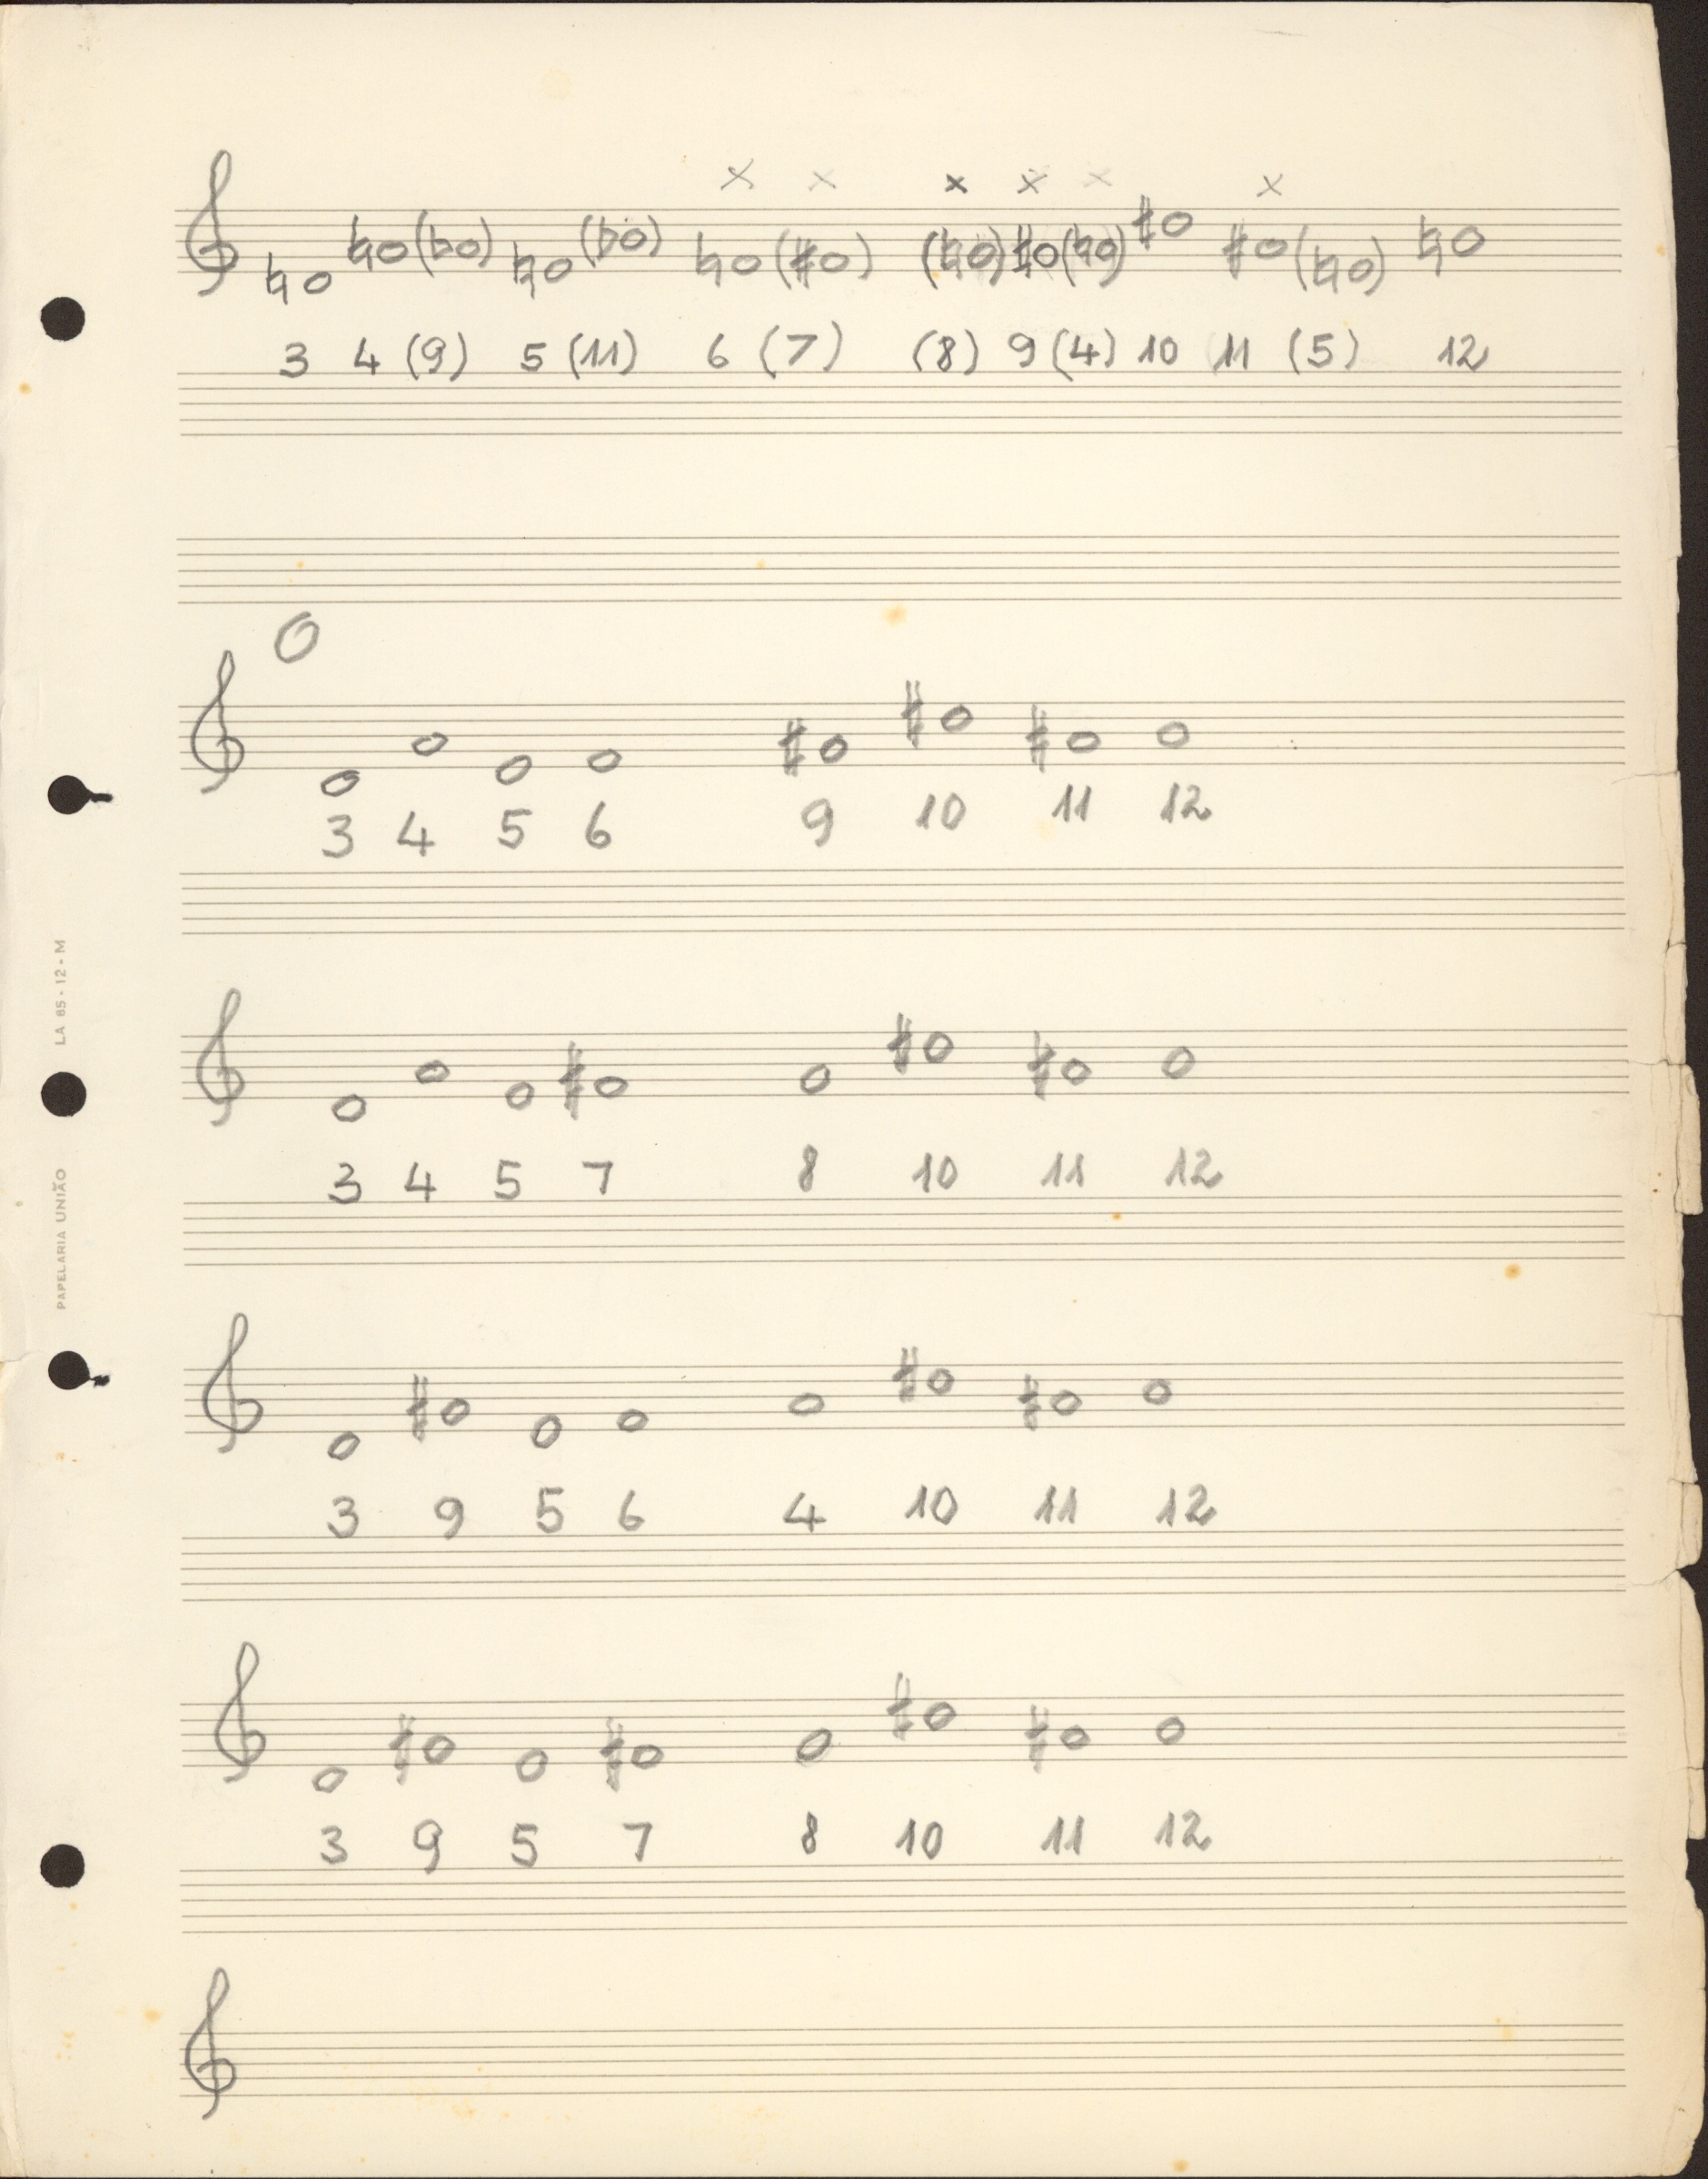 x x x x x x
3 4 (9) 5 (11) 6 (7) (8) 9 (4) 10 11 (5) 12
O
3 4 5 6 9 10 11 12
3 4 5 7 8 10 11 12
3 9 5 6 4 10 11 12
3 9 5 7 8 10 11 12
LA 85 - 12 - M
PAPELARIA UNIÃO